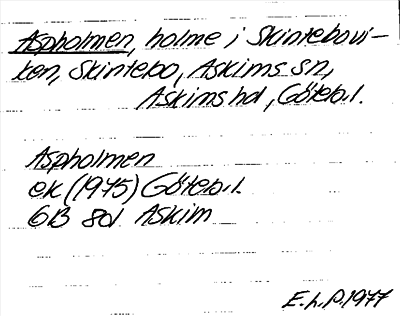 Aspholmen, holme i Skintebovi-
ken, Skintebo, Askims sn,
Askims hd, Göteb.l.
Aspholmen
ek (1975) Göteb.l.
6B 8d Askim
E.L.P. 1977